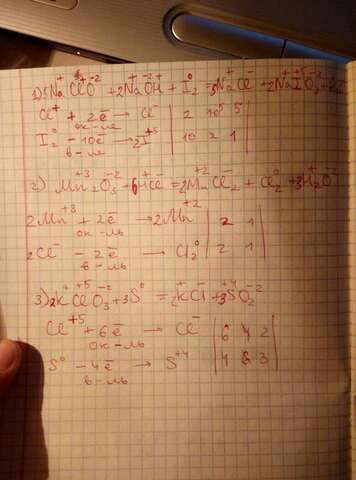 1) 5Na⁺Cl⁺O⁻² + 2Na⁺OH⁺ + I₂⁰ = 5Na⁺Cl⁻ + 2Na⁺I⁺⁵O₃⁻² +
Cl⁺ + 2ē → Cl⁻ | 2 | 10 | 5
ок-ль
I₂⁰ − 10ē → 2I⁺⁵ | 10 | 2 | 1
в-ль
2) Mn₂⁺³O₃⁻² + 6H⁺Cl⁻ = 2Mn⁺²Cl₂⁻ + Cl₂⁰ + 3H₂⁺O⁻²
2Mn⁺³ + 2ē → 2Mn⁺² | 2 | 1
ок-ль
2Cl⁻ − 2ē → Cl₂⁰ | 2 | 1
в-ль
3) 2K⁺Cl⁺⁵O₃⁻² + 3S⁰ = 2K⁺Cl⁻ + 3S⁺⁴O₂⁻²
Cl⁺⁵ + 6ē → Cl⁻ | 6 | 4 | 2
ок-ль
S⁰ − 4ē → S⁺⁴ | 4 | 6 | 3
в-ль